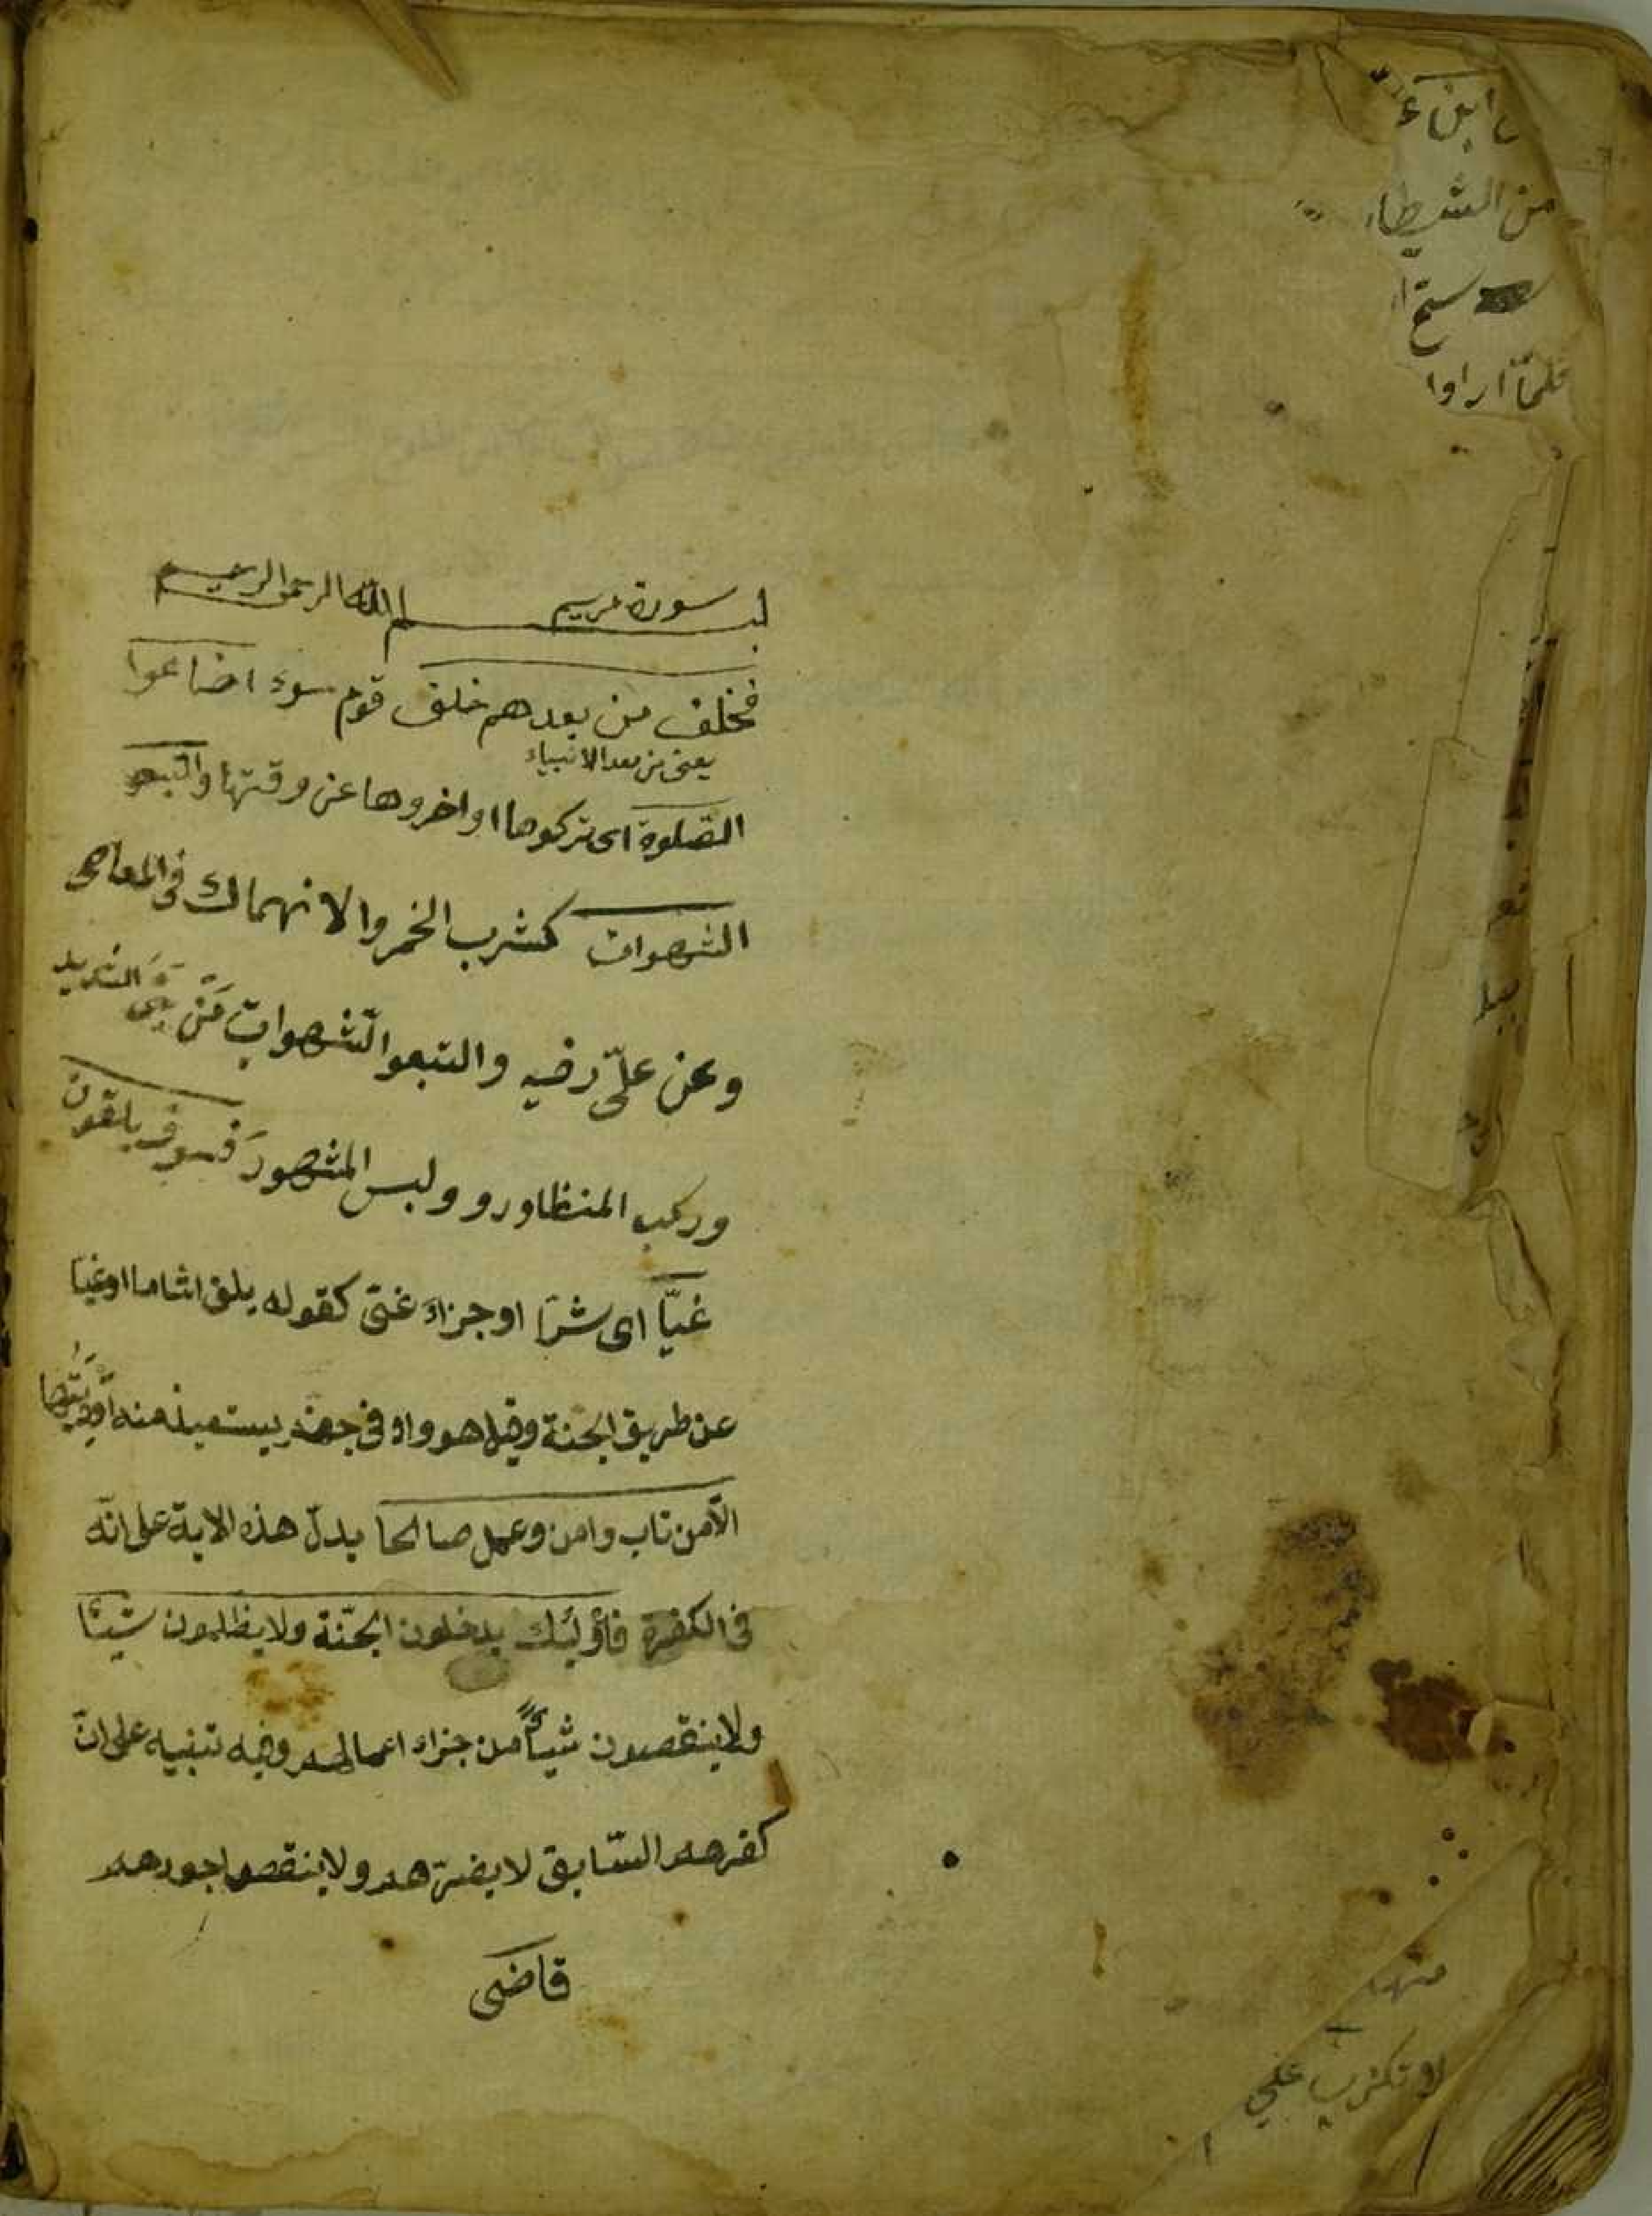 ابناء
من الشيطا
فلما اراوا
سورة مريم
بسم الله الرحمن الرحيم
فخلف من بعدهم خلف قوم سوء اضاعوا
يعنى من بعد الانبياء
الصلوة اى تركوها او اخروها عن وقتها واتبعو
الشهوات كشرب الخمر والانهماك فى المعاصى
وعن علىّ رضيه واتبعوا الشهوات مَن بنى الشديد
وركب المنظاور و ولبس المشهور فسوف يلقون
غيّا اى شرّا او جزاء غىّ كقوله يلق اثاما او غيا
عن طريق الجنة وقيل هو واد فى جهنم يستعيذ منه اوديتها
الّا من تاب وامن وعمل صالحا يدلّ هذه الاية على انّه
فى الكفرة فاؤلئك يدخلون الجنّة ولا يظلمون شيئا
ولا ينقصون شيئاً من جزاء اعمالهم وفيه تنبيه على انّ
كفرهم السّابق لا يضرّهم ولا ينقص اجورهم
قاضى
منها